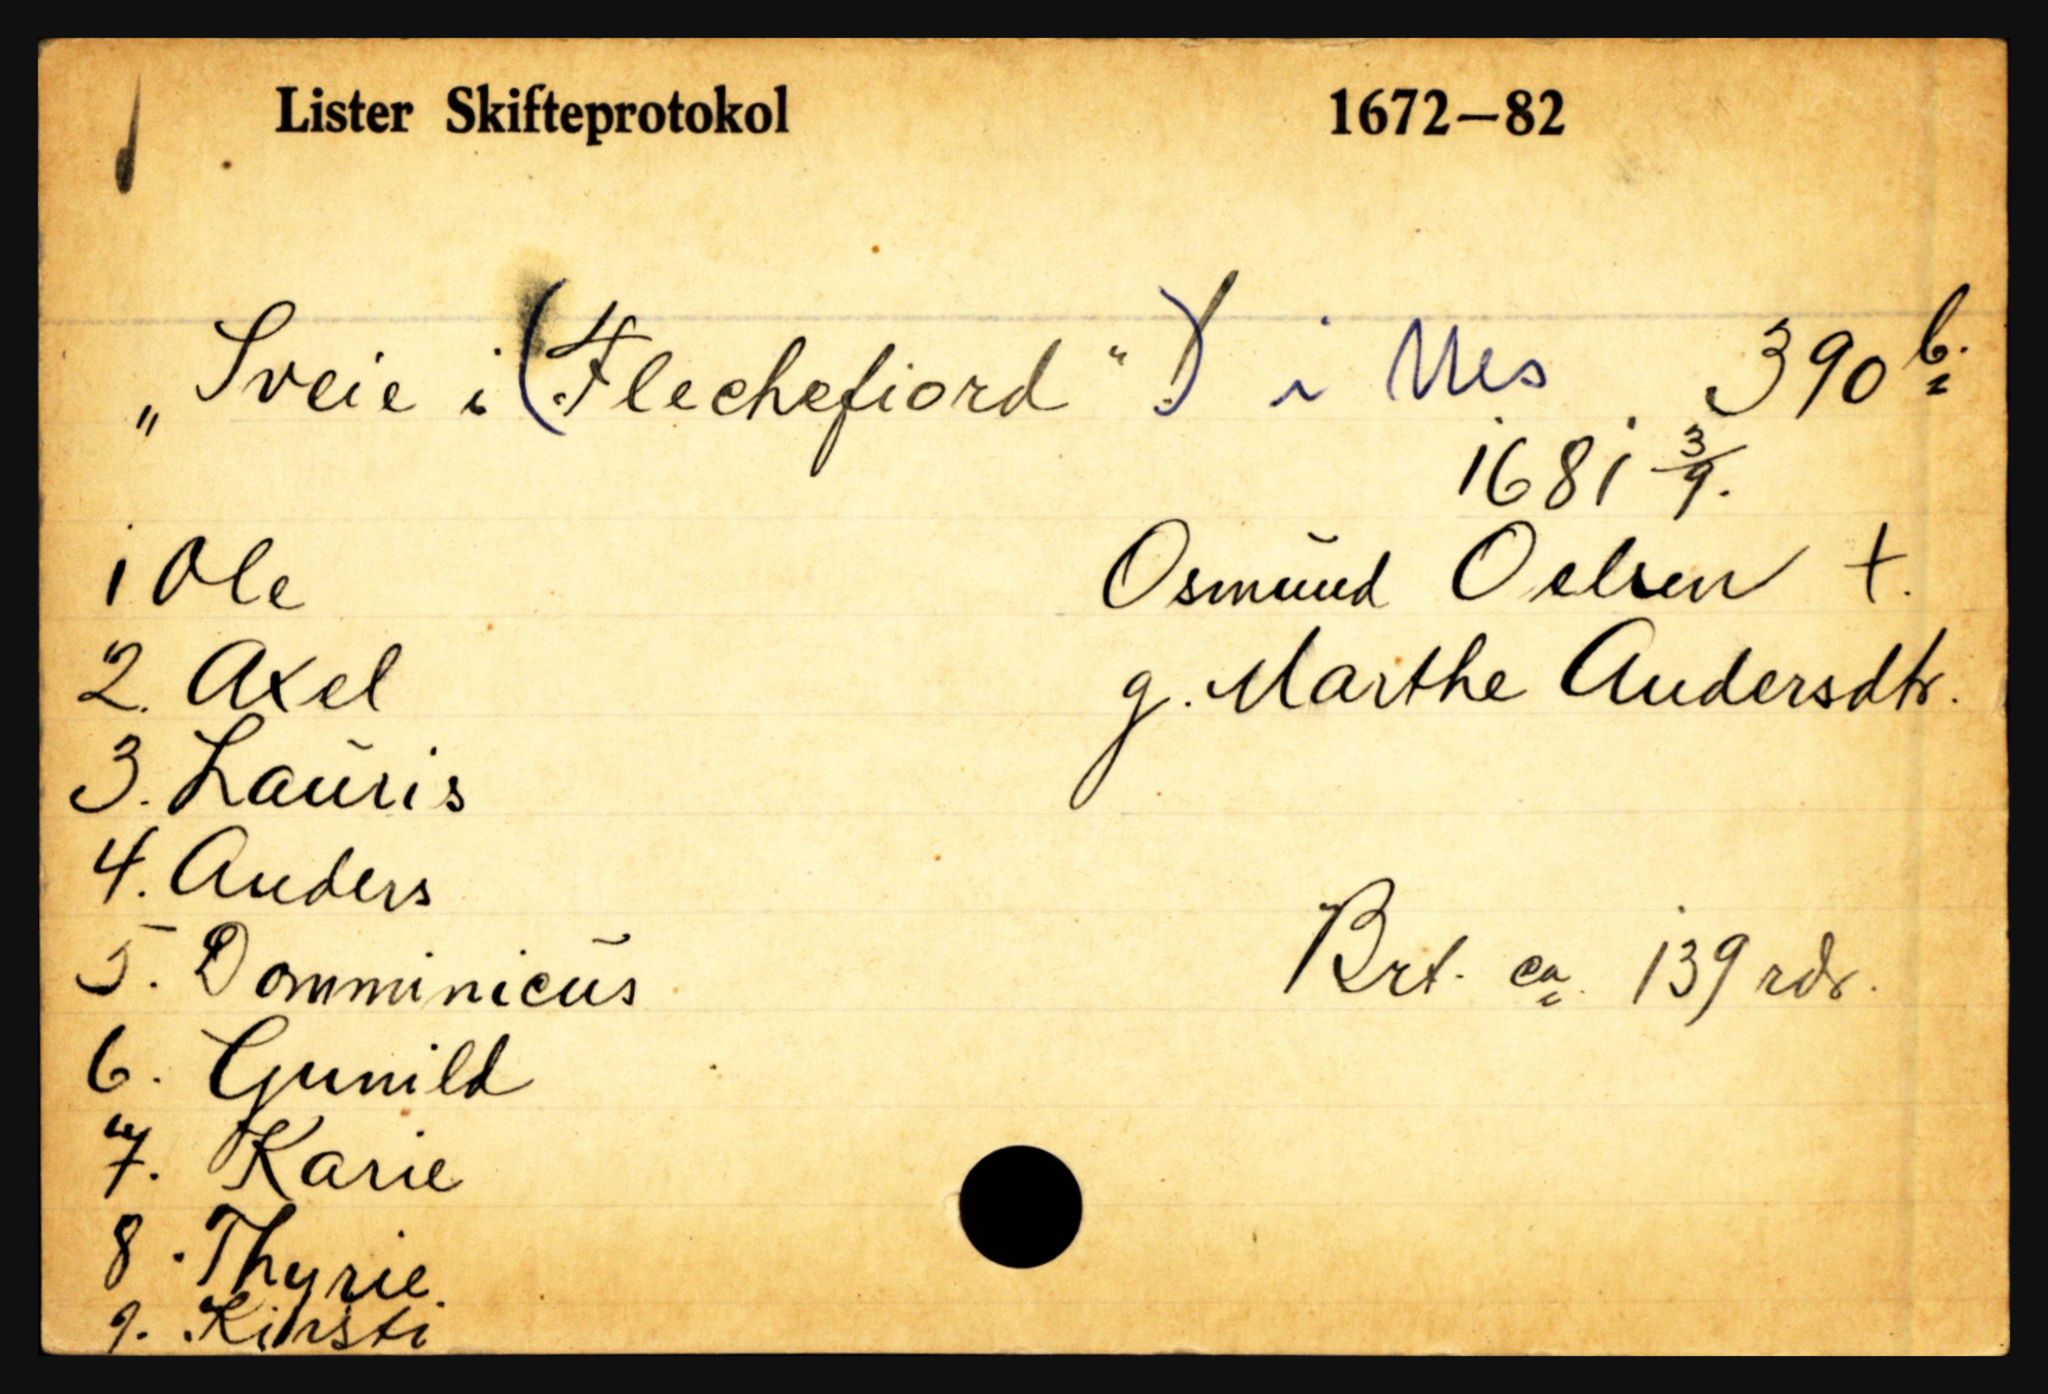 Lister Skifteprotokol 1672—82
„Sveie i (Flechefiord“) i Nes 390 b.
1681 3/9.
1 Ole
Osmund Oelsen †.
2. Axel
g. Marthe Andersdtr.
3. Lauris
4. Anders
5. Domminicus
Brt. ca. 139 rdr.
6. Gunild
7. Karie
8. Thyrie.
9. Kirsti